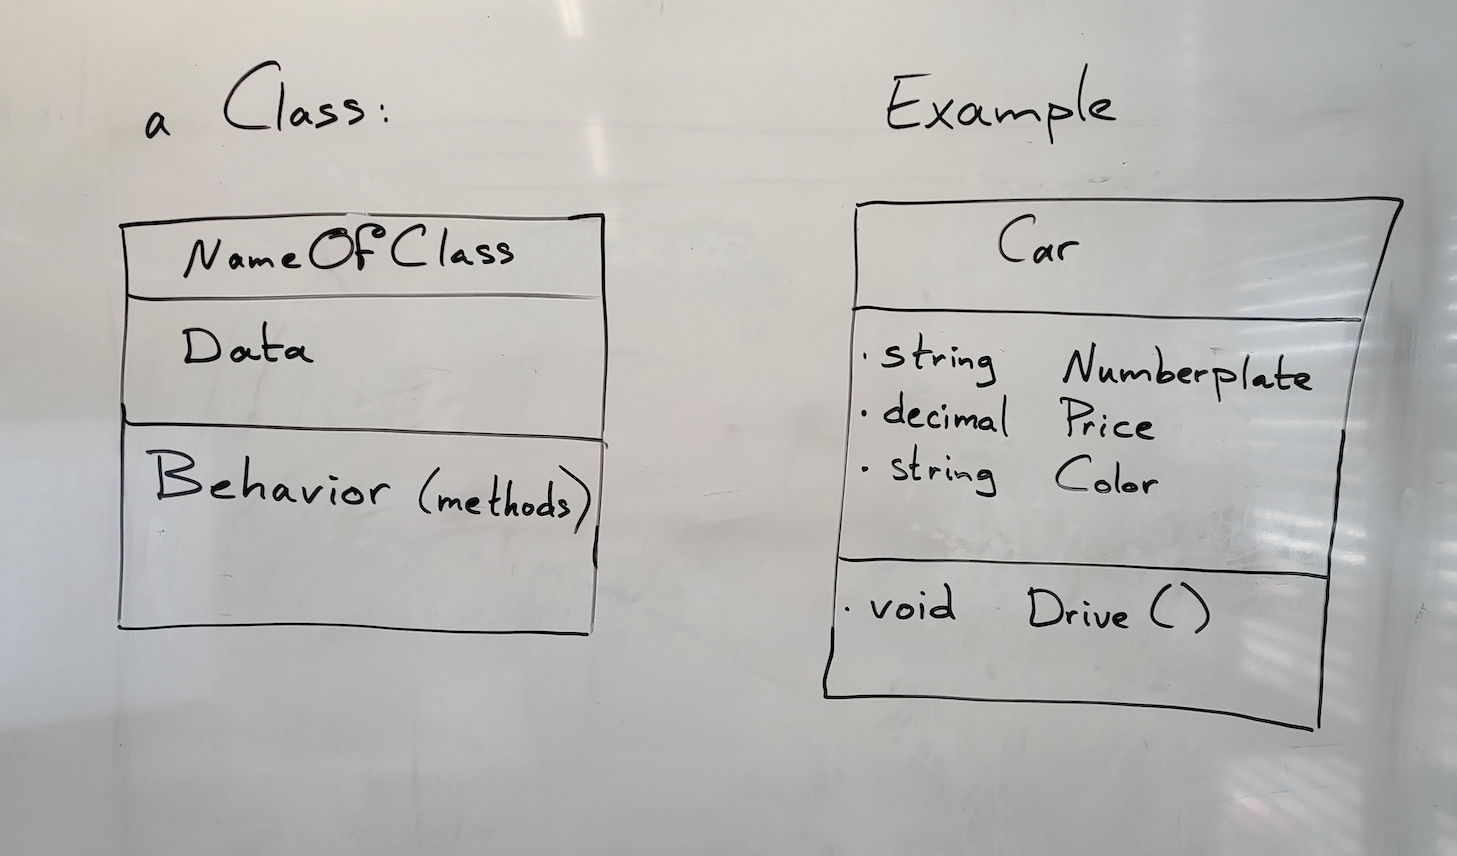 a Class:
NameOfClass
Data
Behavior (methods)
Example
Car
· string Numberplate
· decimal Price
· string Color
· void Drive ()